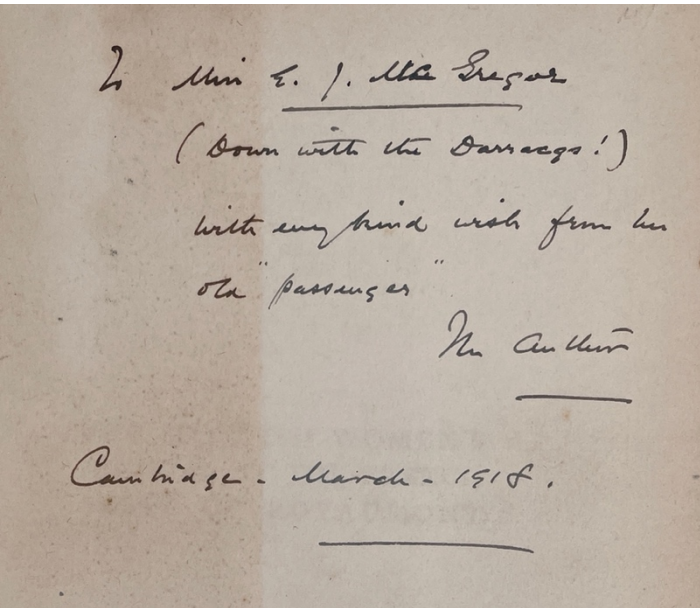 To Miss E. J. MacGregor
(Down with the Darracqs!)
With every kind wish from her
old "passenger"
The Author
Cambridge - March - 1918.